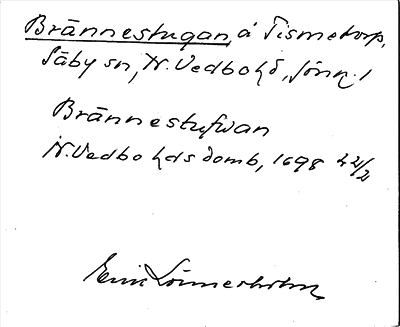 Brännestugan, å Tismetorp,
Säby sn, N. Vedbo hd, Jönk. l
Brännestufwan
N. Vedbo hds domb, 1698 22/2
Erik Lönnerholm